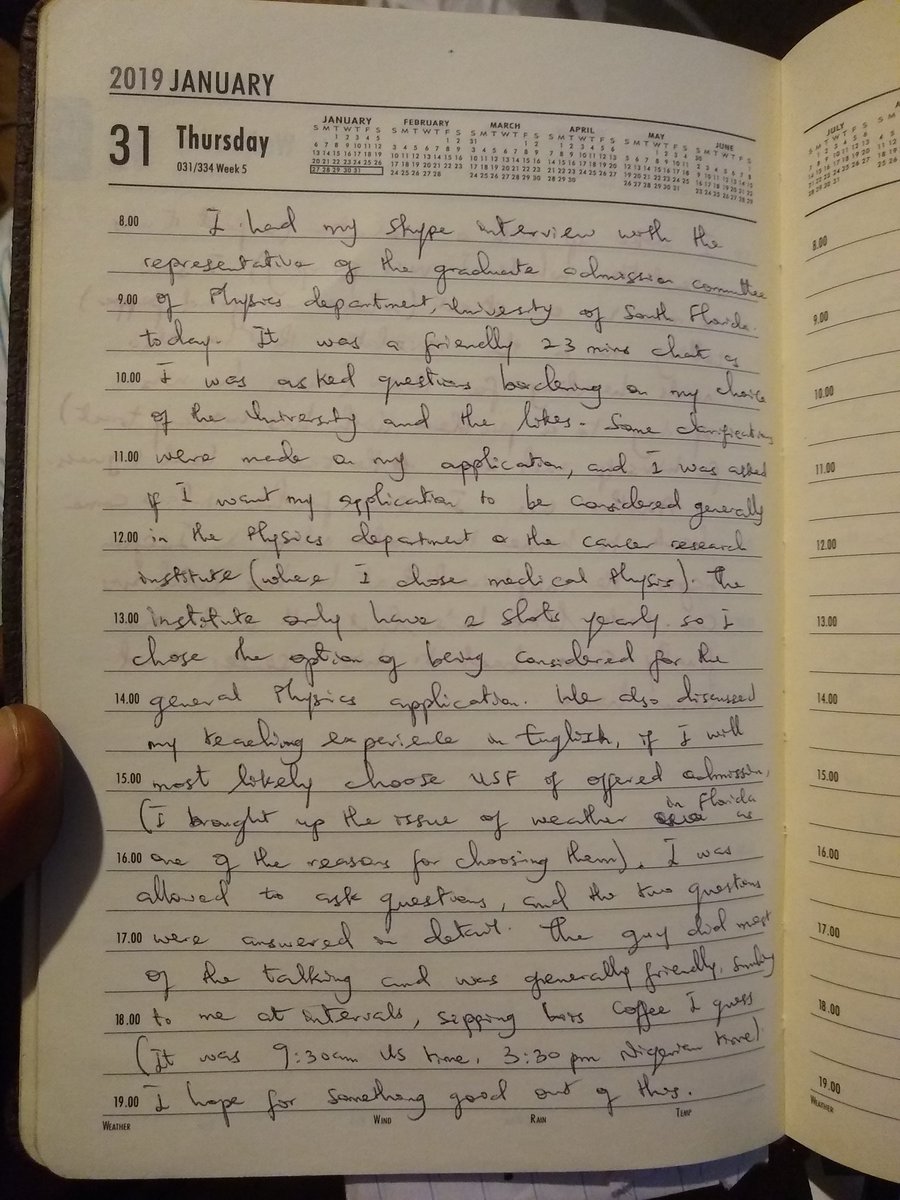 2019 JANUARY
31 Thursday
031/334 Week 5
JANUARY
S M T W T F S
1 2 3 4 5
6 7 8 9 10 11 12
13 14 15 16 17 18 19
20 21 22 23 24 25 26
27 28 29 30 31
FEBRUARY
S M T W T F S
1 2
3 4 5 6 7 8 9
10 11 12 13 14 15 16
17 18 19 20 21 22 23
24 25 26 27 28
MARCH
S M T W T F S
31 1 2
3 4 5 6 7 8 9
10 11 12 13 14 15 16
17 18 19 20 21 22 23
24 25 26 27 28 29 30
APRIL
S M T W T F S
1 2 3 4 5 6
7 8 9 10 11 12 13
14 15 16 17 18 19 20
21 22 23 24 25 26 27
28 29 30
MAY
S M T W T F S
1 2 3 4
5 6 7 8 9 10 11
12 13 14 15 16 17 18
19 20 21 22 23 24 25
26 27 28 29 30 31
JUNE
S M T W T F S
30 1
2 3 4 5 6 7 8
9 10 11 12 13 14 15
16 17 18 19 20 21 22
23 24 25 26 27 28 29
8.00 I had my skype interview with the
representative of the graduate admission committee
9.00 of Physics department, University of South Florida.
today. It was a friendly 23 mins chat as
10.00 I was asked questions bordering on my choice
of the University and the likes. Some clarifications
11.00 were made on my application, and I was asked
if I want my application to be considered generally
12.00 in the Physics department or the cancer research
institute (where I chose medical Physics). The
13.00 institute only have 2 slots yearly so I
chose the option of being considered for the
14.00 general Physics application. We also discussed
my teaching experience in English, if I will
15.00 most likely choose USF if offered admission,
(I brought up the issue of weather in Florida as
16.00 one of the reasons for choosing them). I was
allowed to ask questions, and the two questions
17.00 were answered in detail. The guy did most
of the talking and was generally friendly, smiling
18.00 to me at intervals, sipping his coffee I guess
(It was 9:30am US time, 3:30pm Nigerian time)
19.00 I hope for something good out of this.
WEATHER WIND RAIN TEMP
JULY
8.00
9.00
10.00
11.00
12.00
13.00
14.00
15.00
16.00
17.00
18.00
19.00
WEATHER